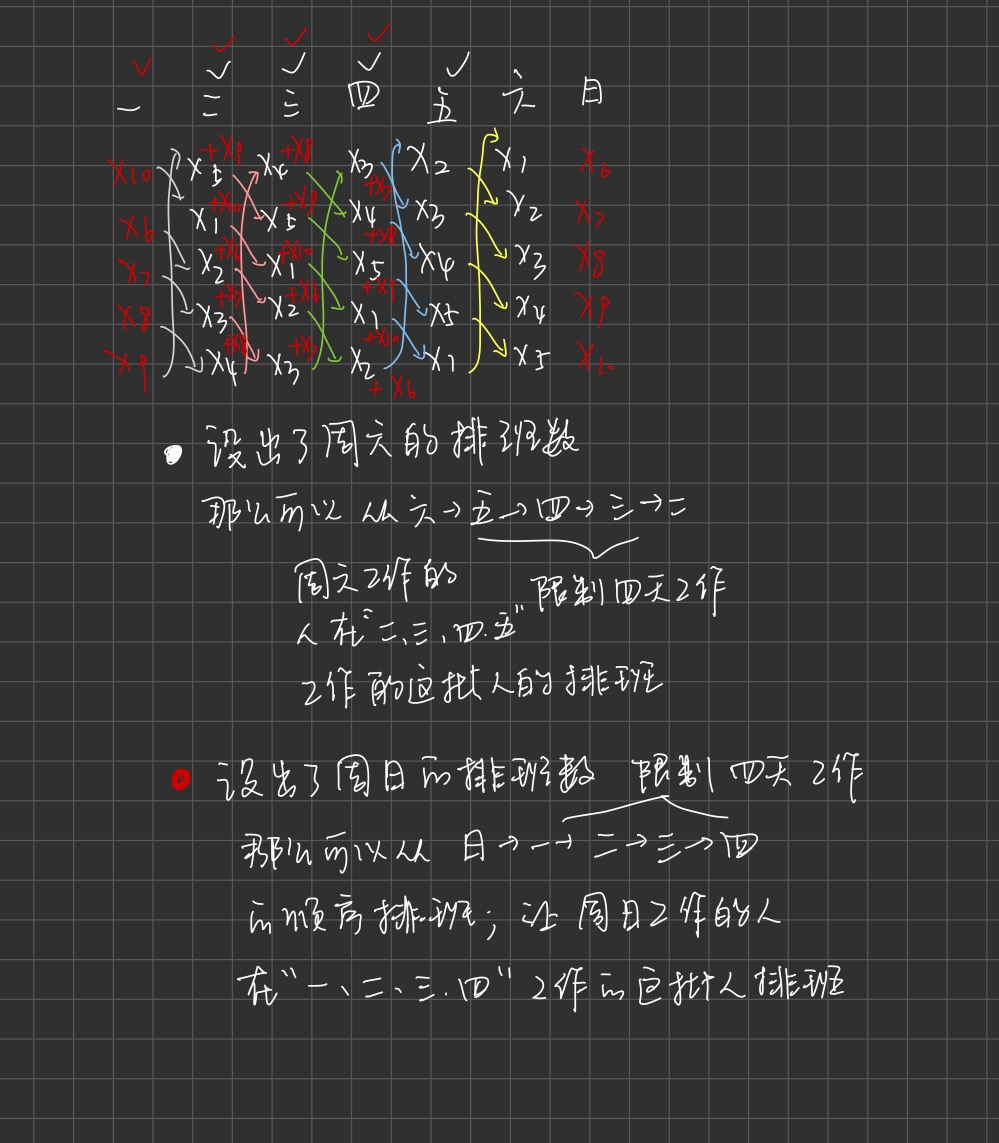 一 二 三 四 五 六 日
x10 x5+x9 x4+x8 x3 x2 x1 x6
x6 x1+x10 x5+x9 x4+x7 x3 x2 x7
x7 x2+x6 x1+x10 x5+x8 x4 x3 x8
x8 x3+x7 x2+x6 x1+x9 x5 x4 x9
x9 x4+x8 x3+x7 x2+x10 x1 x5 x10
+x6
设出了周六的排班数
那么可以从六→五→四→三→二
周六工作的 限制四天工作
人在"二、三、四.五"
工作的这批人的排班
设出了周日的排班数 限制四天工作
那么可以从 日→一→二→三→四
的顺序排班;让周日工作的人
在"一、二、三.四"工作的这批人排班